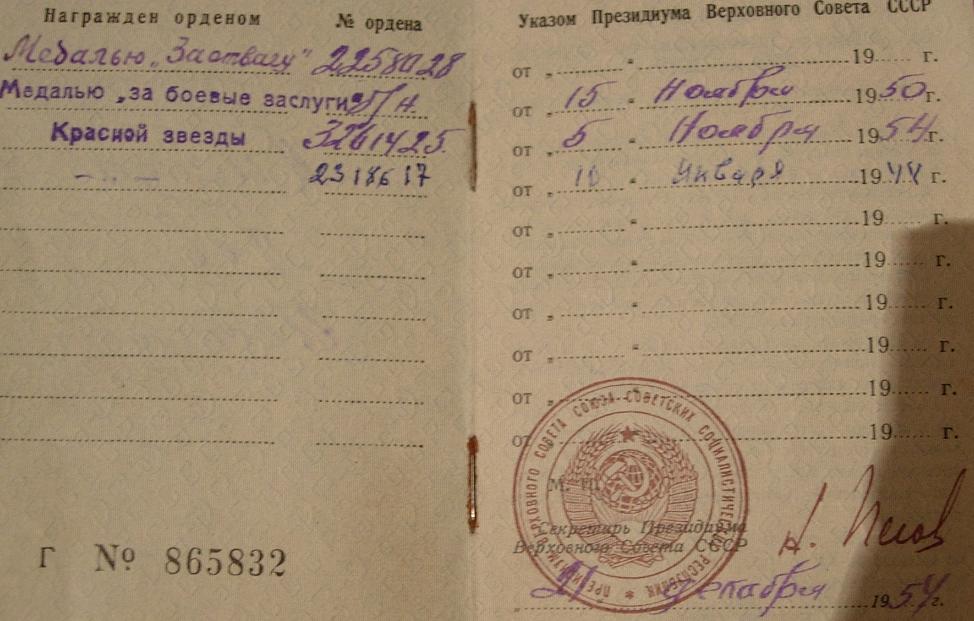 Награжден орденом № ордена
Медалью „За отвагу" 2258028
Медалью „за боевые заслуги" б/н
Красной звезды 3261425
— „ — 2318617
Г № 865832
Указом Президиума Верховного Совета СССР
от „ “ 19 г.
от „ 15 “ Ноября 1950 г.
от „ 5 “ Ноября 1954 г.
от „ 10 “ Января 1944 г.
от „ “ 19 г.
от „ “ 19 г.
от „ “ 19 г.
от „ “ 19 г.
от „ “ 19 г.
от 19 г.
ПРЕЗИДИУМ ВЕРХОВНОГО СОВЕТА СОЮЗА СОВЕТСКИХ СОЦИАЛИСТИЧЕСКИХ РЕСПУБЛИК
М. П.
Секретарь Президиума
Верховного Совета СССР
Н. Пегов
„ 21 Декабря 1954 г.